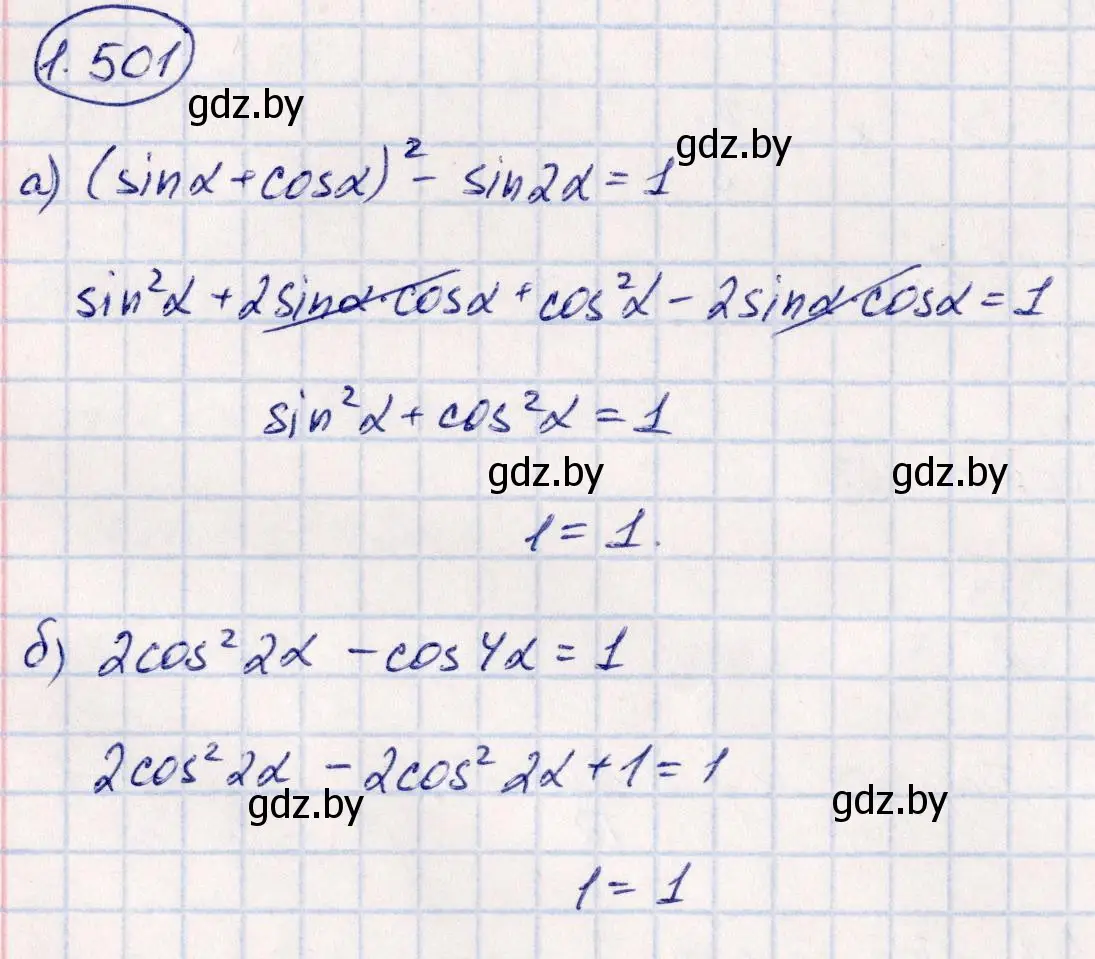 1.501
gdz.by
gdz.by
а) (sinα+cosα)² - sin2α = 1
sin²α + 2sinα cosα + cos²α - 2sinα cosα = 1
sin²α + cos²α = 1
gdz.by gdz.by
1 = 1.
б) 2cos² 2α - cos4α = 1
2cos² 2α - 2cos² 2α + 1 = 1
gdz.by gdz.by
1 = 1